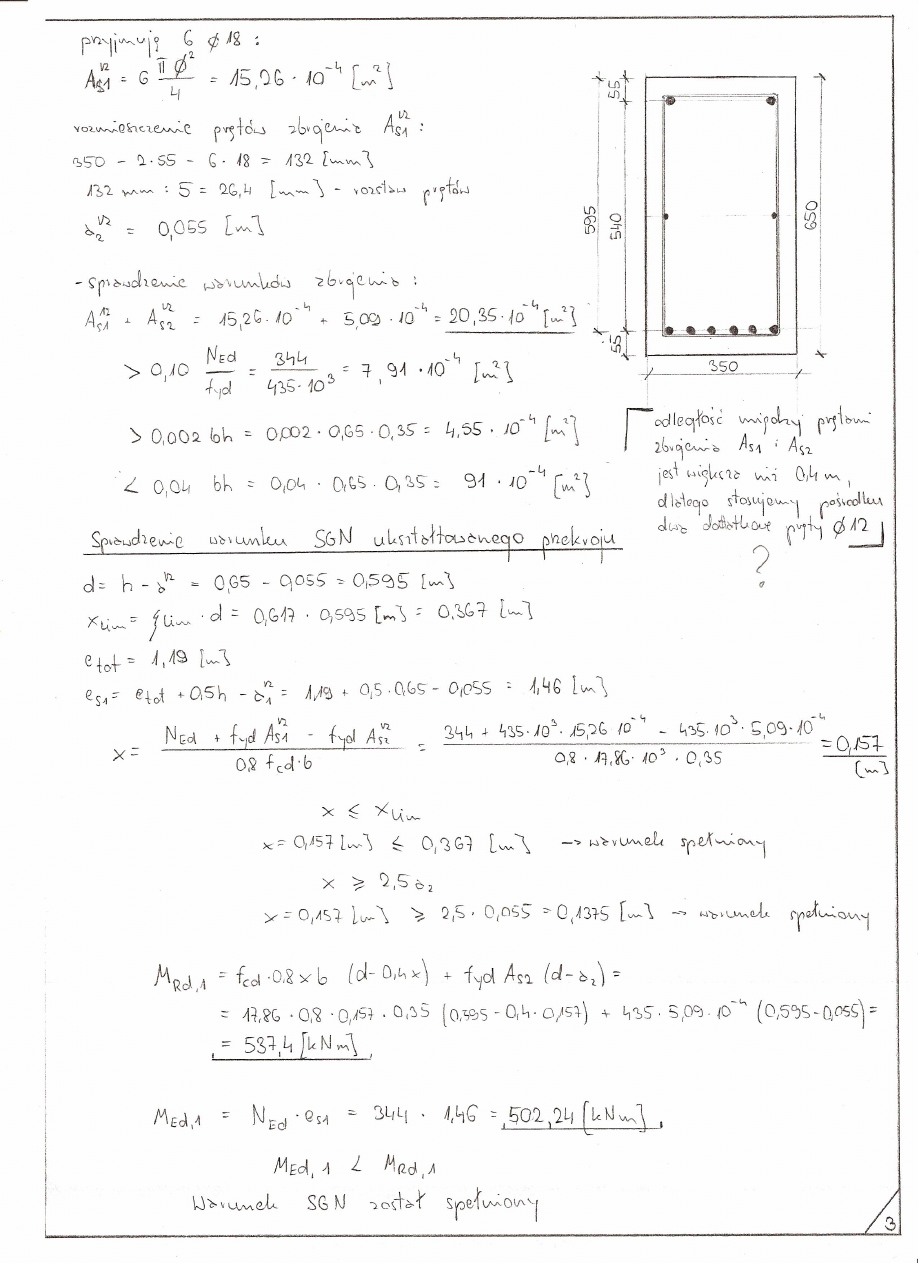 przyjmuję 6 ø 18 :
A_S1^V2 = 6 π ø² / 4 = 15,26 · 10⁻⁴ [m²]
rozmieszczenie prętów zbrojenia A_S1^V2 :
350 - 2·55 - 6·18 = 132 [mm]
132 mm : 5 = 26,4 [mm] - rozstaw prętów
a_2^V2 = 0,055 [m]
- sprawdzenie warunków zbrojenia :
A_S1^V2 + A_S2^V2 = 15,26·10⁻⁴ + 5,09·10⁻⁴ = 20,35·10⁻⁴ [m²]
> 0,10 N_Ed / fyd = 344 / 435·10³ = 7,91 · 10⁻⁴ [m²]
> 0,002 bh = 0,002 · 0,65 · 0,35 = 4,55 · 10⁻⁴ [m²]
< 0,04 bh = 0,04 · 0,65 · 0,35 = 91 · 10⁻⁴ [m²]
55
595
540
55
650
350
odległość między prętami
zbrojenia As1 i As2
jest większa niż 0,4 m,
dlatego stosujemy pośrodku
dwa dodatkowe pręty ø12
?
Sprawdzenie warunku SGN ukształtowanego przekroju
d = h - a^V2 = 0,65 - 0,055 = 0,595 [m]
x_lim = ξ_lim · d = 0,617 · 0,595 [m] = 0,367 [m]
e_tot = 1,19 [m]
e_s1 = e_tot + 0,5h - a_1^V2 = 1,19 + 0,5·0,65 - 0,055 = 1,46 [m]
x = N_Ed + fyd A_S1^V2 - fyd A_S2^V2 / 0,8 fcd·b = 344 + 435·10³·15,26·10⁻⁴ - 435·10³·5,09·10⁻⁴ / 0,8 · 17,86·10³ · 0,35 = 0,157 [m]
x ≤ x_lim
x = 0,157 [m] ≤ 0,367 [m] → warunek spełniony
x ≥ 2,5 a_2
x = 0,157 [m] ≥ 2,5 · 0,055 = 0,1375 [m] → warunek spełniony
M_Rd,1 = fcd · 0,8 x b (d - 0,4x) + fyd A_S2 (d - a_2) =
= 17,86 · 0,8 · 0,157 · 0,35 (0,595 - 0,4 · 0,157) + 435 · 5,09·10⁻⁴ (0,595 - 0,055) =
= 537,4 [kNm]
M_Ed,1 = N_Ed · e_s1 = 344 · 1,46 = 502,24 [kNm]
M_Ed,1 < M_Rd,1
Warunek SGN został spełniony
3